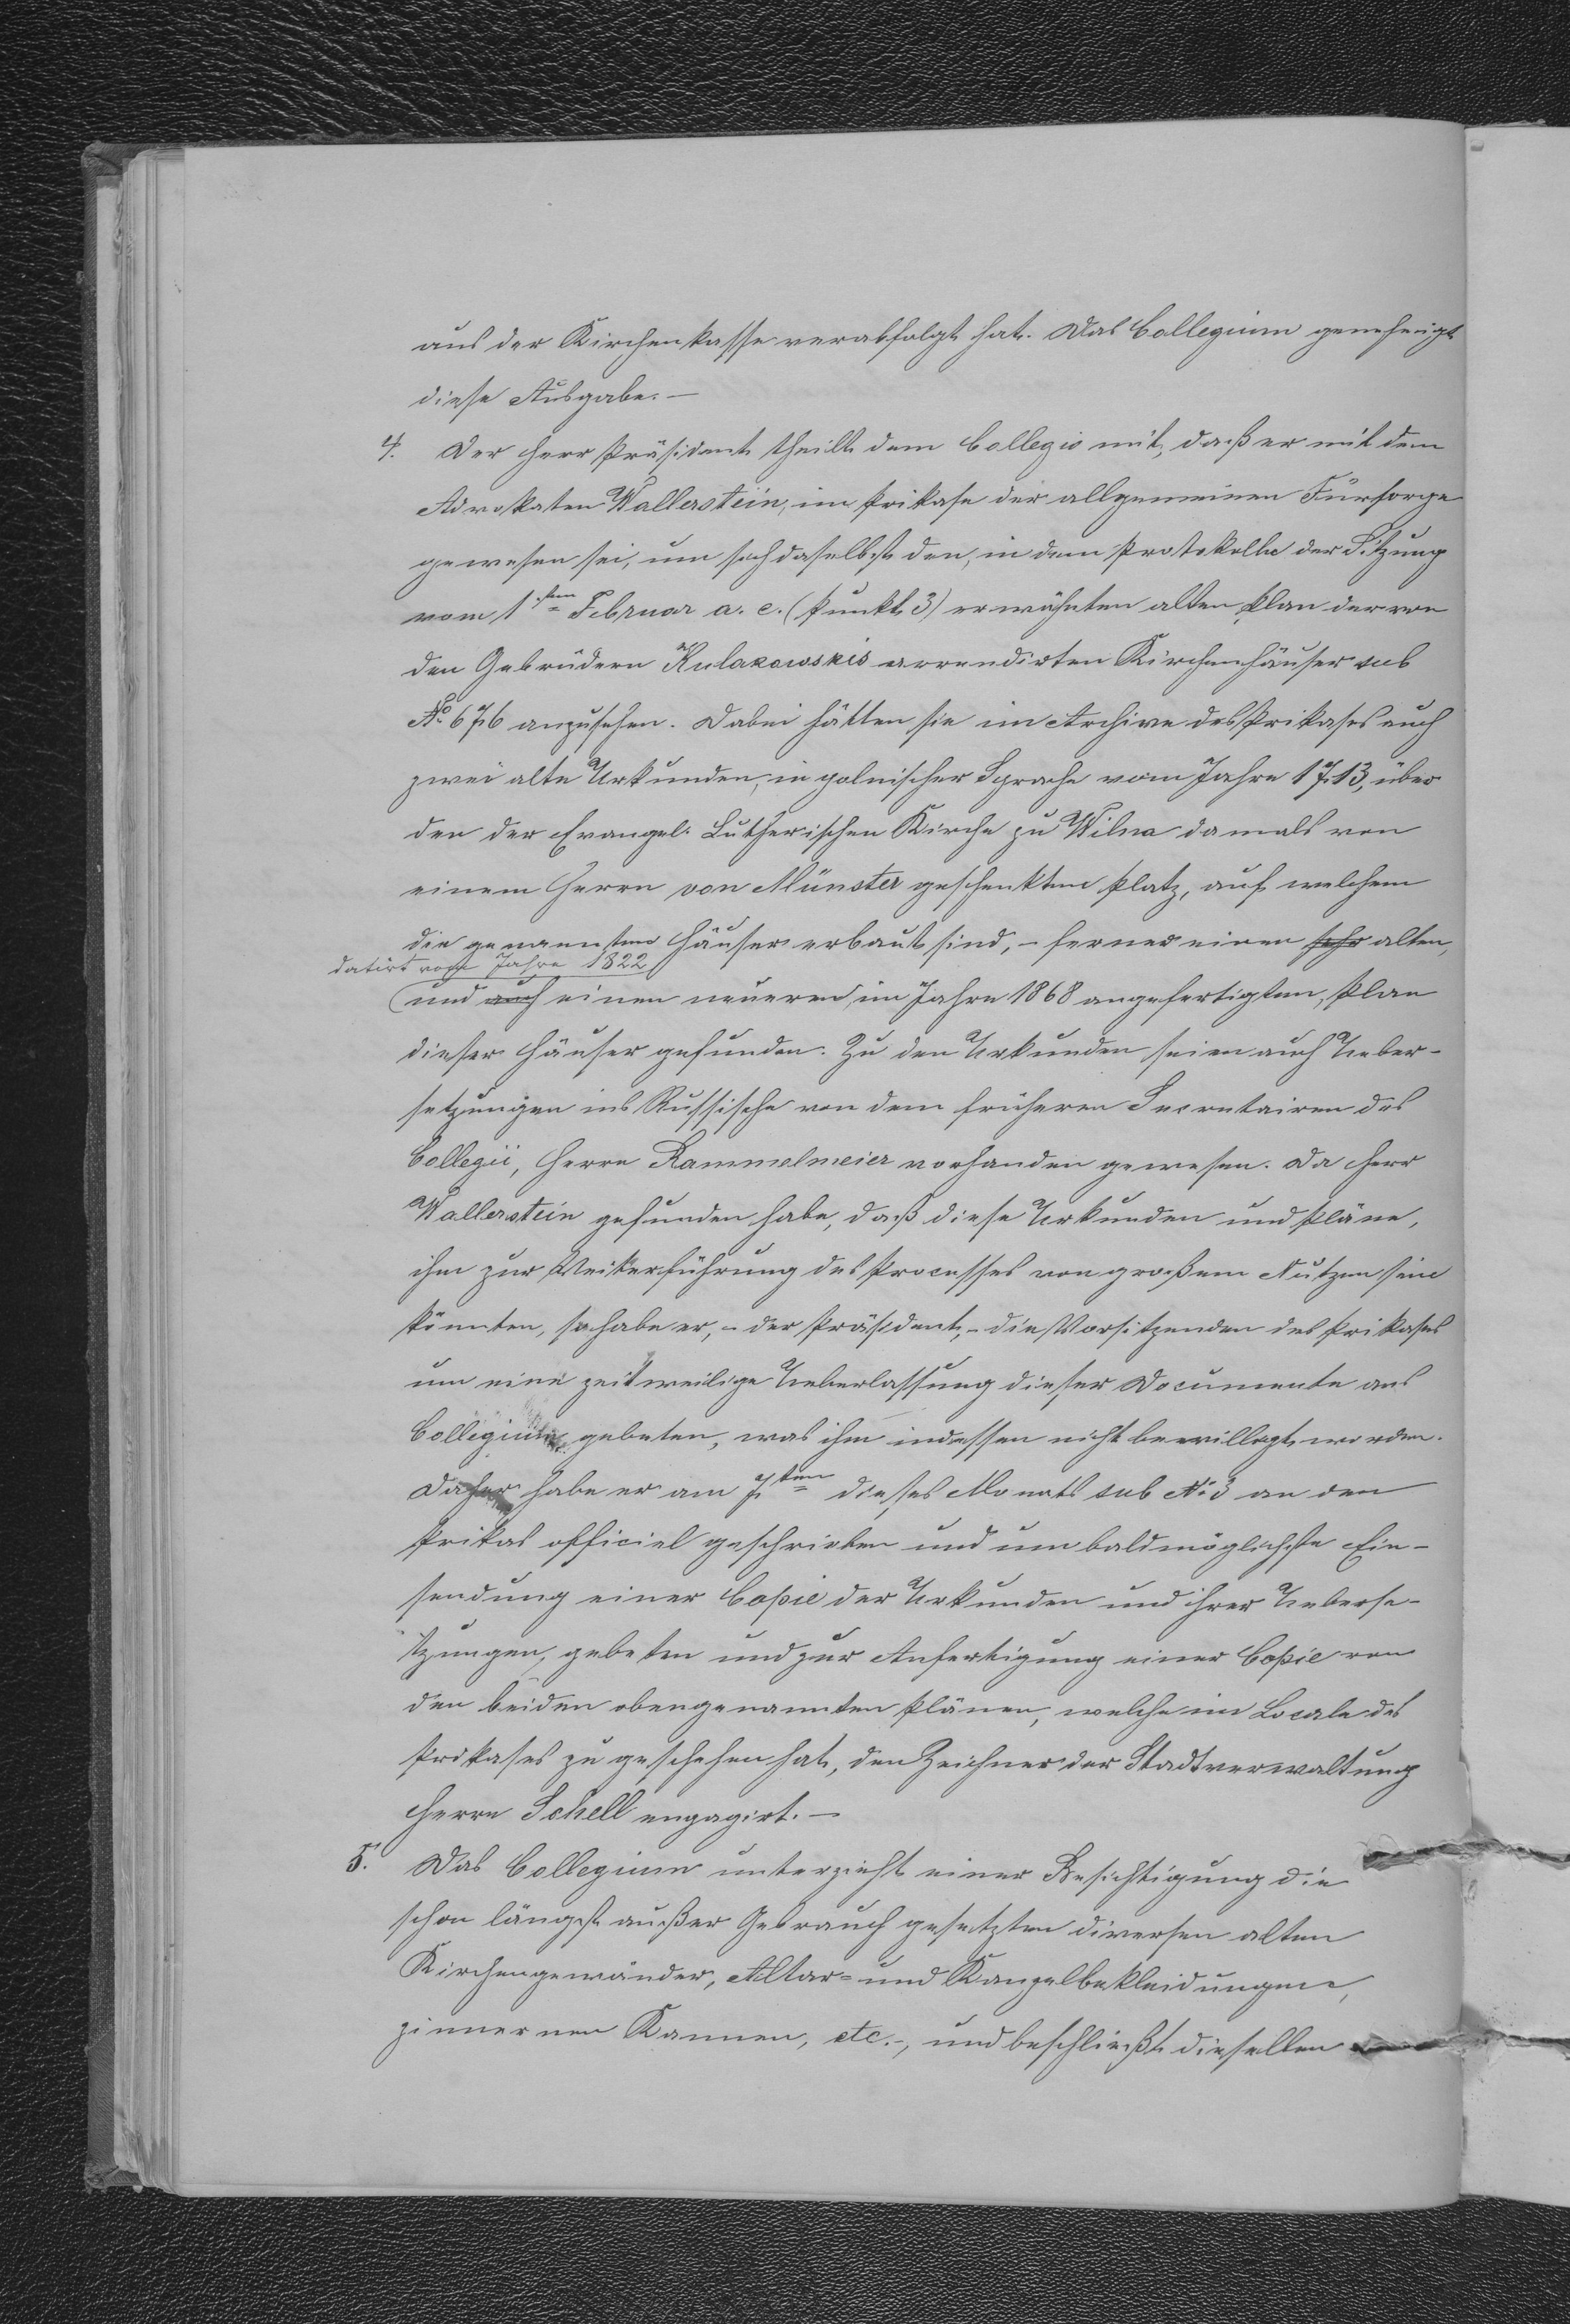 aus der Kirchenkasse verabfolgt hat. Das Collegium genehmigt
diese Ausgabe. –
4. Der Herr Präsident theilt dem Collegio mit, daß er mit dem
Advokaten Wallerstein, im Prikase der allgemeinen Fürsorge
gewesen sei, um sich daselbst den, in dem Protokolle der Sitzung
vom 1sten Februar a. c. (Punkt 3) erwähnten alten Plan der von
den Gebrüdern Kulakowskis arrendirten Kirchenhäuser sub
No 676 anzusehen. Dabei hätten sie im Archive des Prikases auch
zwei alte Urkunden, in polnischer Sprache vom Jahre 1713, über
den der Evangel. Lutherischen Kirche zu Wilna damals von
einem Herrn von Münster geschenkten Platz, auf welchem
die genannten Häuser erbaut sind, – ferner einen sehr alten,
datirt vom Jahre 1822
und auch einen neueren, im Jahre 1868 angefertigten, Plan
dieser Häuser gefunden. Zu den Urkunden seien auch Ueber-
setzungen ins Russische von dem früheren Secretairen des
Collegii, Herrn Rammelmeier vorhanden gewesen. Da Herr
Wallerstein gefunden habe, daß diese Urkunden und Pläne,
ihm zur Weiterführung des Processes von großem Nutzen sein
könnten, so habe er, – der Präsident, – die Vorsitzenden des Prikases
um eine zeitweilige Ueberlassung dieser Documente ans
Collegium gebeten, was ihm indessen nicht bewilligt worden.
Daher habe er am 7ten dieses Monats sub No 3 an den
Prikas officiel geschrieben und um baldmöglichste Ein-
sendung einer Copie der Urkunden und ihrer Ueberse-
tzungen, gebeten und zur Anfertigung einer Copie von
den beiden obengenannten Plänen, welche im Locale des
Prikases zu geschehen hat, den Zeichner der Stadtverwaltung
Herrn Schell engagirt. –
5. Das Collegium unterzieht einer Besichtigung die
schon längst außer Gebrauch gesetzten diversen alten
Kirchengewänder, Altar- und Kanzelbekleidungen,
zinnernen Kannen, etc. –, und beschließt dieselben